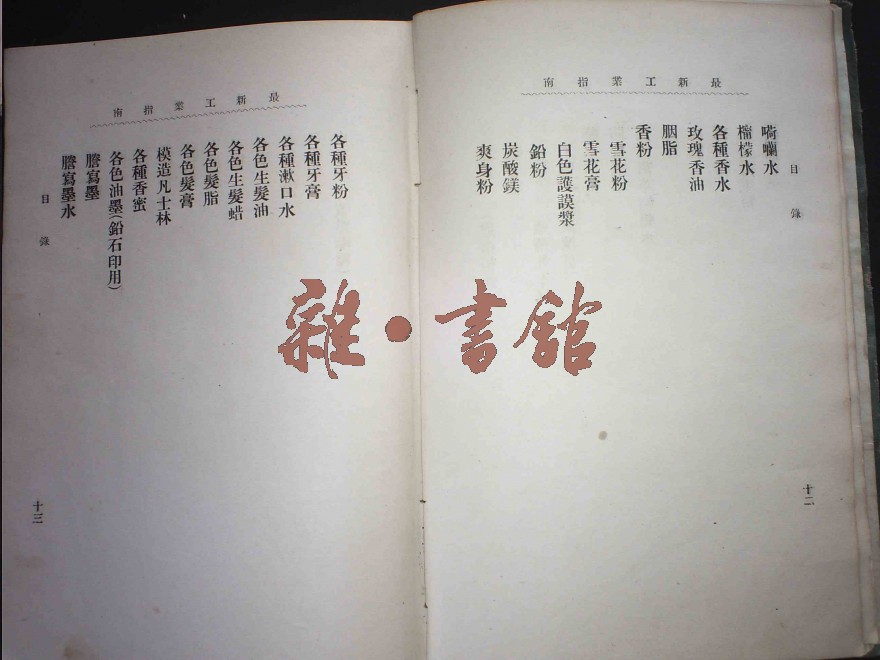 最新工業指南
目錄
嗬囒水
檸檬水
各種香水
玫瑰香油
胭脂
香粉
雪花粉
雪花膏
白色護謨漿
鉛粉
炭酸鎂
爽身粉
十二
最新工業指南
各種牙粉
各種牙膏
各種漱口水
各色生髮油
各色生髮蜡
各色髮脂
各色髮膏
模造凡士林
各種香蜜
各色油墨(鉛石印用)
謄寫墨
謄寫墨水
目錄
十三
雜·書館